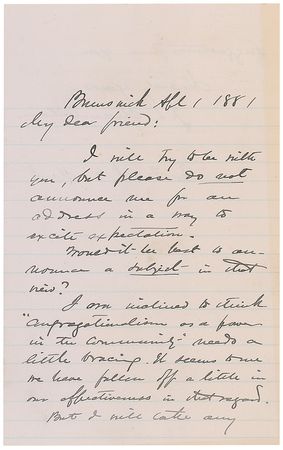 Brunswick Apl 1 1881
My dear friend:
I will try to be with
you, but please do not
announce me for an
address in a way to
excite expectation.
Would it be best to an-
nounce a subject in that
view?
I am inclined to think
"Congregationalism as a power
in the Community" needs a
little bracing. It seems to me
we have fallen off a little in
our effectiveness in that regard.
But I will take any